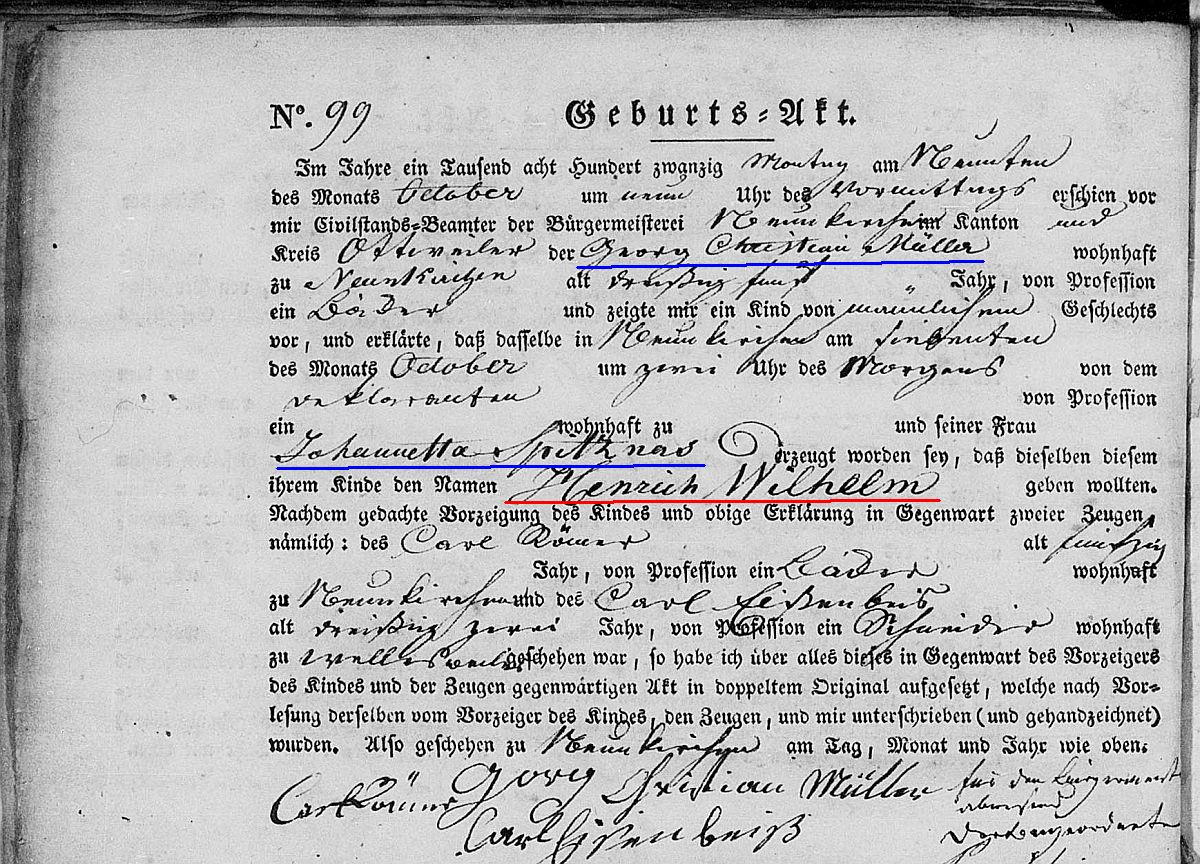 No. 99 Geburts-Akt.
Im Jahre ein Tausend acht Hundert zwanzig Montag am Neunten
des Monats October um neun Uhr des Vormittags erschien vor
mir Civilstands-Beamter der Bürgermeisterei Neunkirchen im Kanton und
Kreis Ottweiler der Georg Christian Müller wohnhaft
zu Neunkirchen alt dreißig fünf Jahr, von Profession
ein Bäcker und zeigte mir ein Kind von männlichem Geschlechts
vor, und erklärte, daß dasselbe in Neunkirchen am siebenten
des Monats October um zwei Uhr des Morgens von dem
deklaranten von Profession
ein wohnhaft zu und seiner Frau
Johannetta Spitznas erzeugt worden sey, daß dieselben diesem
ihrem Kinde den Namen Henrich Wilhelm geben wollten.
Nachdem gedachte Vorzeigung des Kindes und obige Erklärung in Gegenwart zweier Zeugen,
nämlich: des Carl Römer alt fünfzig
Jahr, von Profession ein Bäcker wohnhaft
zu Neunkirchen und des Carl Eißenbeis
alt dreißig zwei Jahr, von Profession ein Schneider wohnhaft
zu Wellesweiler geschehen war, so habe ich über alles dieses in Gegenwart des Vorzeigers
des Kindes und der Zeugen gegenwärtigen Akt in doppeltem Original aufgesetzt, welche nach Vor-
lesung derselben vom Vorzeiger des Kindes, den Zeugen, und mir unterschrieben (und gehandzeichnet)
wurden. Also geschehen zu Neunkirchen am Tag, Monat und Jahr wie oben.
Carl Römer Gorg Christian Müller für den Bürgermeist
abwesend
Carl Eisenbeiß Der beygeordnete